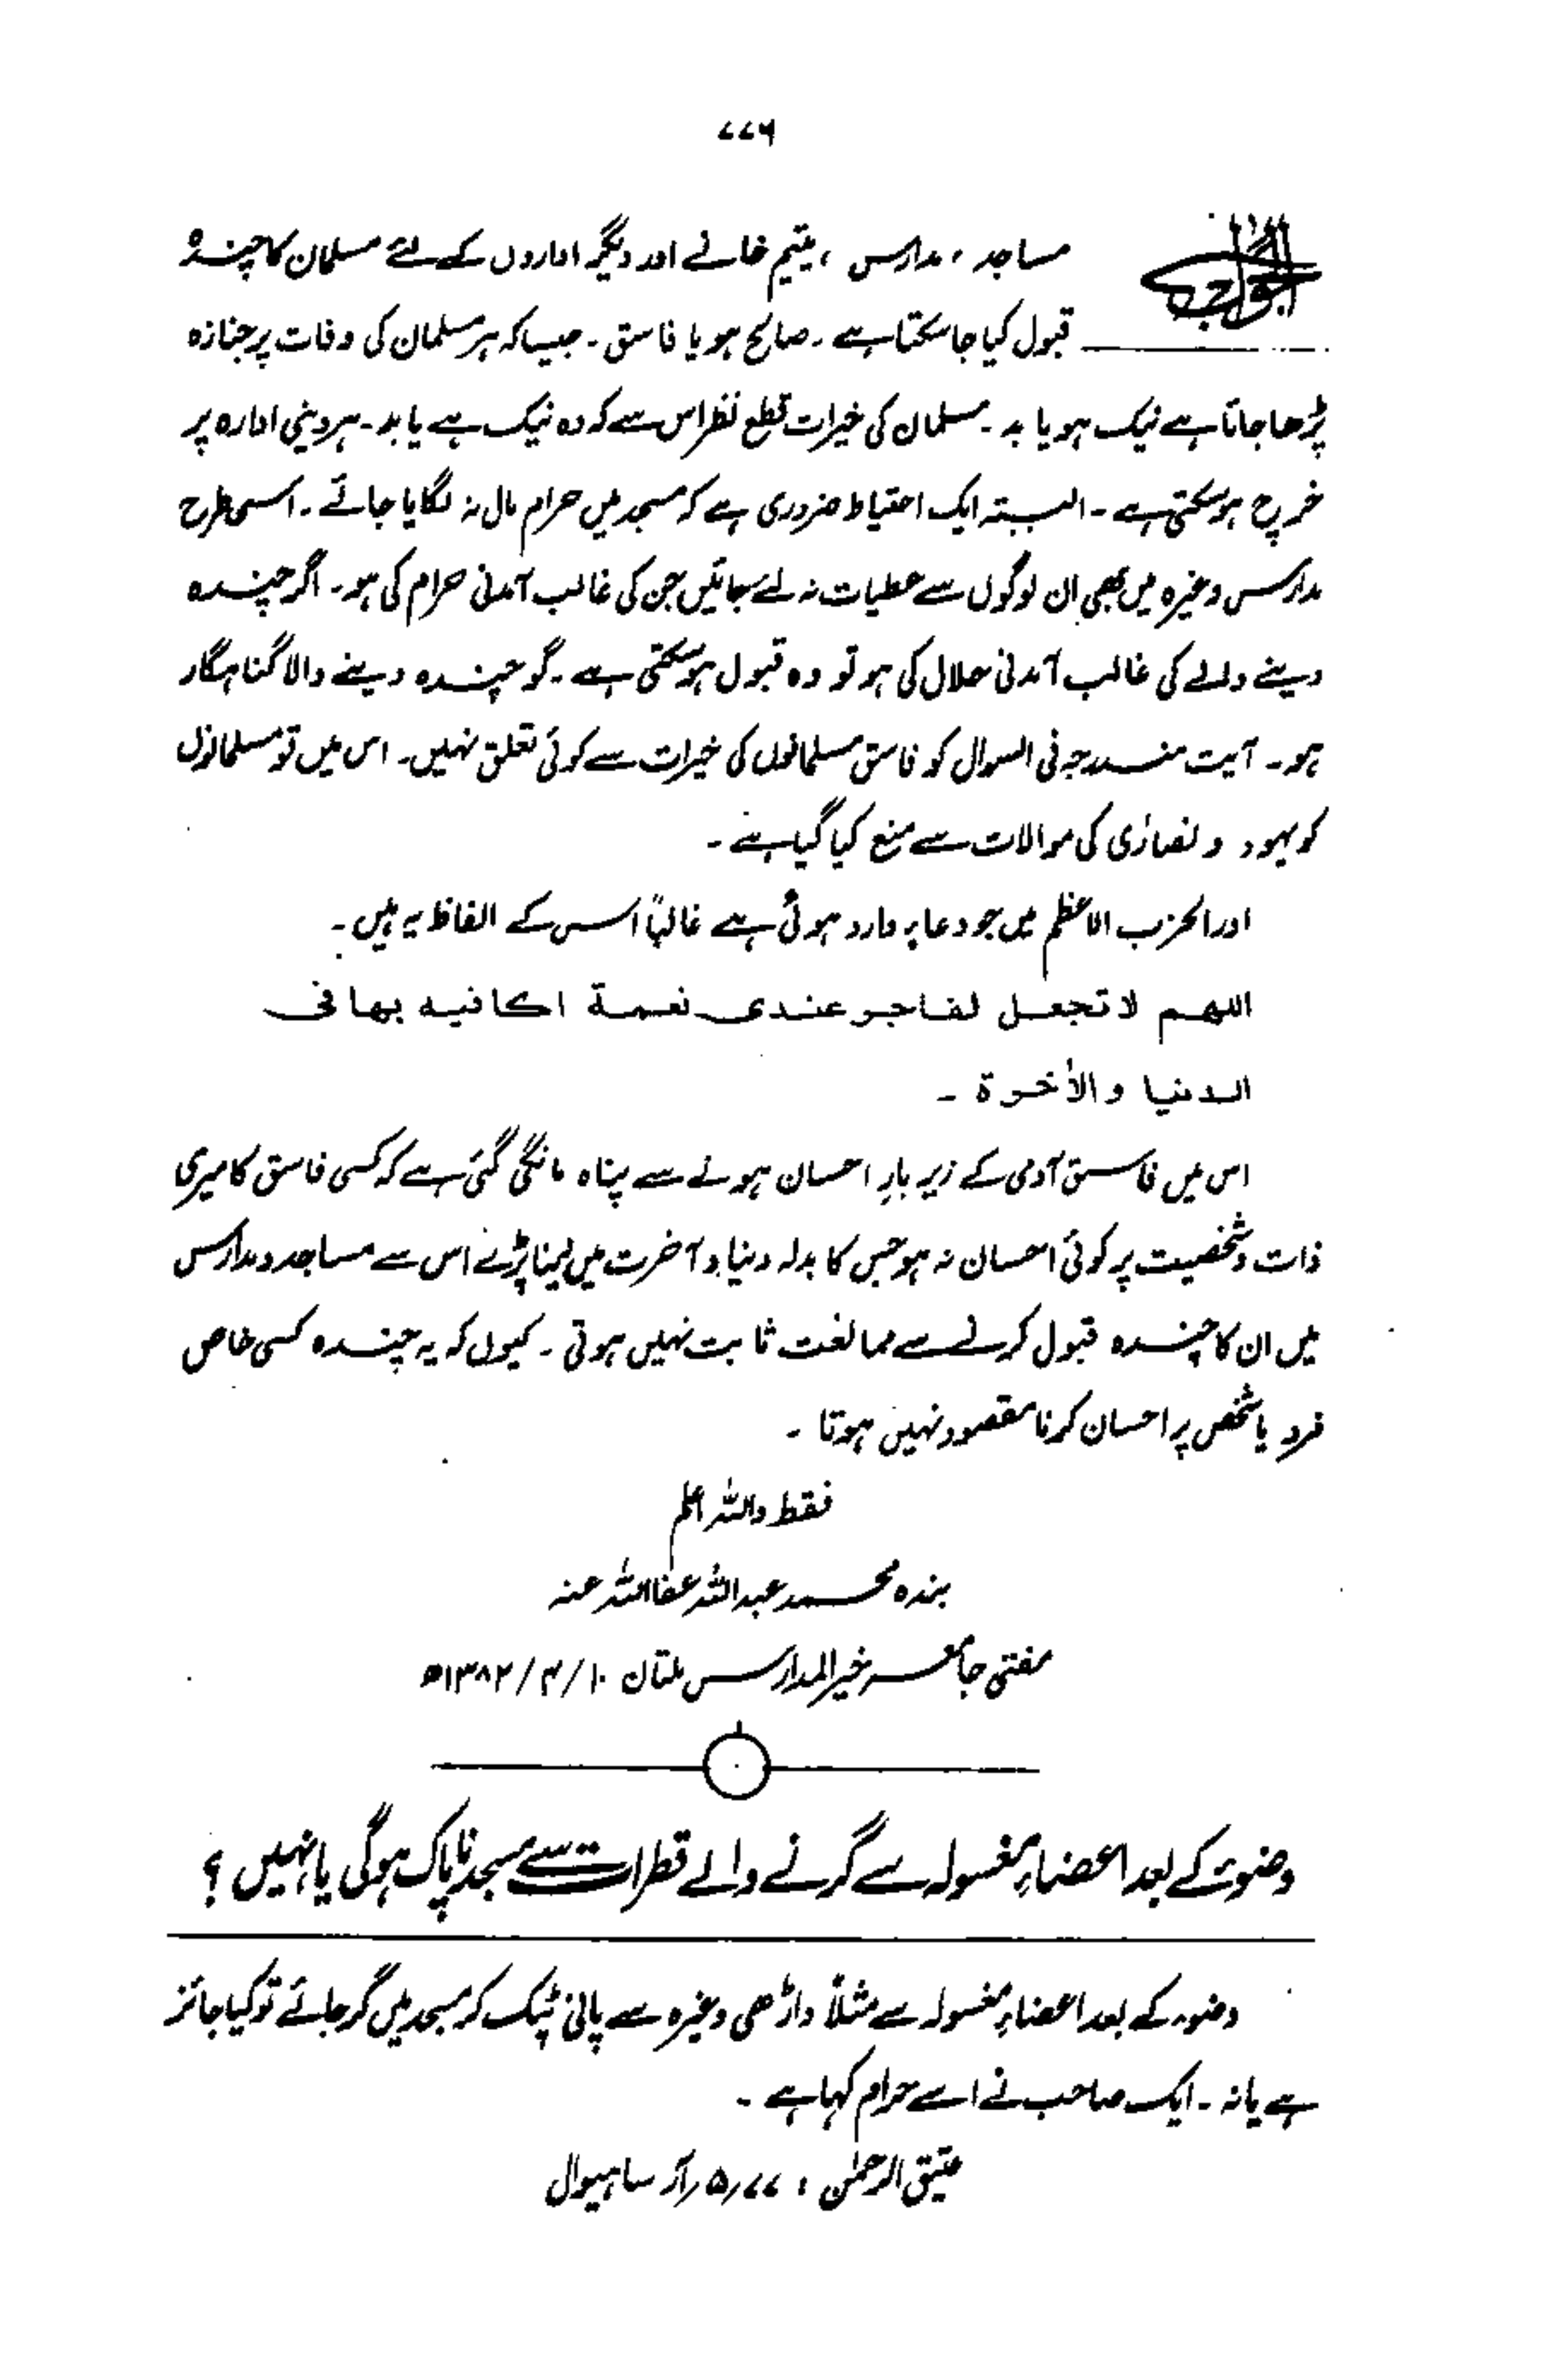 ۷۷۶
الجواب
مساجد، مدارس، یتیم خانے اور دیگر اداروں کے لئے مسلمان کا چندہ
قبول کیا جا سکتا ہے۔ صالح ہو یا فاسق۔ جیسا کہ ہر مسلمان کی وفات پر جنازہ
پڑھا جاتا ہے نیک ہو یا بد۔ مسلمان کی خیرات قطع نظر اس سے کہ وہ نیک ہے یا بد۔ ہر دینی ادارہ پر
خرچ ہو سکتی ہے۔ البتہ ایک احتیاط ضروری ہے کہ مسجد میں حرام مال نہ لگایا جائے۔ اسی طرح
مدارس وغیرہ میں بھی ان لوگوں سے عطیات نہ لئے جائیں جن کی غالب آمدنی حرام کی ہو۔ اگر چندہ
دینے والے کی غالب آمدنی حلال کی ہو تو وہ قبول ہو سکتی ہے۔ گو چندہ دینے والا گناہگار
ہو۔ آیت مندرجہ فی السوال کو فاسق مسلمانوں کی خیرات سے کوئی تعلق نہیں۔ اس میں تو مسلمانوں
کو یہود و نصاریٰ کی موالات سے منع کیا گیا ہے۔
اور الحزب الاعظم میں جو دعا پر وارد ہوئی ہے غالباً اس کے الفاظ یہ ہیں۔
اللهم لا تجعل لفاجر عندی نعمة اكافیه بها فی
الدنیا والأخرة ۔
اس میں فاسق آدمی کے زیر بارِ احسان ہونے سے پناہ مانگی گئی ہے کہ کسی فاسق کا میری
ذات و شخصیت پر کوئی احسان نہ ہو جس کا بدلہ دنیا و آخرت میں لینا پڑے اس سے مساجد و مدارس
میں ان کا چندہ قبول کرنے سے ممانعت ثابت نہیں ہوتی۔ کیوں کہ یہ چندہ کسی خاص
فرد یا شخص پر احسان کرنا مقصود نہیں ہوتا۔
فقط واللہ اعلم
بندہ محمد عبداللہ عفا اللہ عنہ
مفتی جامعہ خیر المدارس ملتان ۱۰/۴/۱۳۸۲ھ
وضوء کے بعد اعضاءِ مغسولہ سے گرنے والے قطرات سے مسجد ناپاک ہوگی یا نہیں؟
وضوء کے بعد اعضاءِ مغسولہ سے مثلاً داڑھی وغیرہ سے پانی ٹپک کر مسجد میں گر جائے تو کیا جائز
ہے یا نہ۔ ایک صاحب نے اسے حرام کہا ہے۔
عتیق الرحمٰن، ۷۷/۵ آر ساہیوال